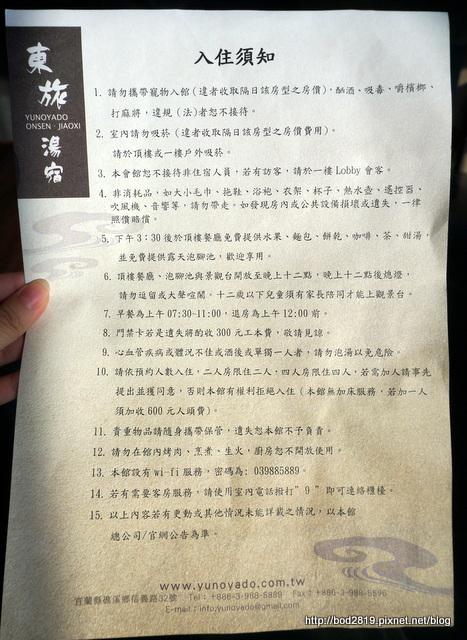 東旅湯宿
YUNOYADO
ONSEN‧JIAOXI
入住須知
1. 請勿攜帶寵物入館(違者收取隔日該房型之房價),酗酒、吸毒、嚼檳榔、
打麻將,違規(法)者恕不接待。
2. 室內請勿吸菸(違者收取隔日該房型之房價費用)。
請於頂樓或一樓戶外吸菸。
3. 本會館恕不接待非住宿人員,若有訪客,請於一樓 Lobby 會客。
4. 非消耗品,如大小毛巾、拖鞋、浴袍、衣架、杯子、熱水壺、遙控器、
吹風機、音響等,請勿帶走。如發現房內或公共設備損壞或遺失,一律
照價賠償。
5. 下午3:30後於頂樓餐廳免費提供水果、麵包、餅乾、咖啡、茶、甜湯,
並免費提供露天泡腳池,歡迎享用。
6. 頂樓餐廳、泡腳池與景觀台開放至晚上十二點,晚上十二點後熄燈,
請勿逗留或大聲喧鬧。十二歲以下兒童須有家長陪同才能上觀景台。
7. 早餐為上午 07:30~11:00,退房為上午 12:00 前。
8. 門禁卡若是遺失將酌收 300 元工本費,敬請見諒。
9. 心血管疾病或體況不佳或酒後或單獨一人者,請勿泡湯以免危險。
10. 請依預約人數入住,二人房限住二人,四人房限住四人,若需加人請事先
提出並獲同意,否則本館有權利拒絕入住(本館無加床服務,若加一人
須加收 600 元人頭費)。
11. 貴重物品請隨身攜帶保管,遺失恕本館不予負責。
12. 請勿在館內烤肉、烹煮、生火,廚房恕不開放使用。
13. 本館設有 wi-fi 服務,密碼為: 039885889。
14. 若有需要客房服務,請使用室內電話撥打”9”即可連絡櫃檯。
15. 以上內容若有更動或其他情況未能詳載之情況,以本館
總公司/官網公告為準。
www.yunoyado.com.tw
宜蘭縣礁溪鄉信義路32號 Tel:+886-3-988-5889 Fax:+886-3-988-5596
E-mail:info.yunoyado@gmail.com
http://bod2819.pixnet.net/blog